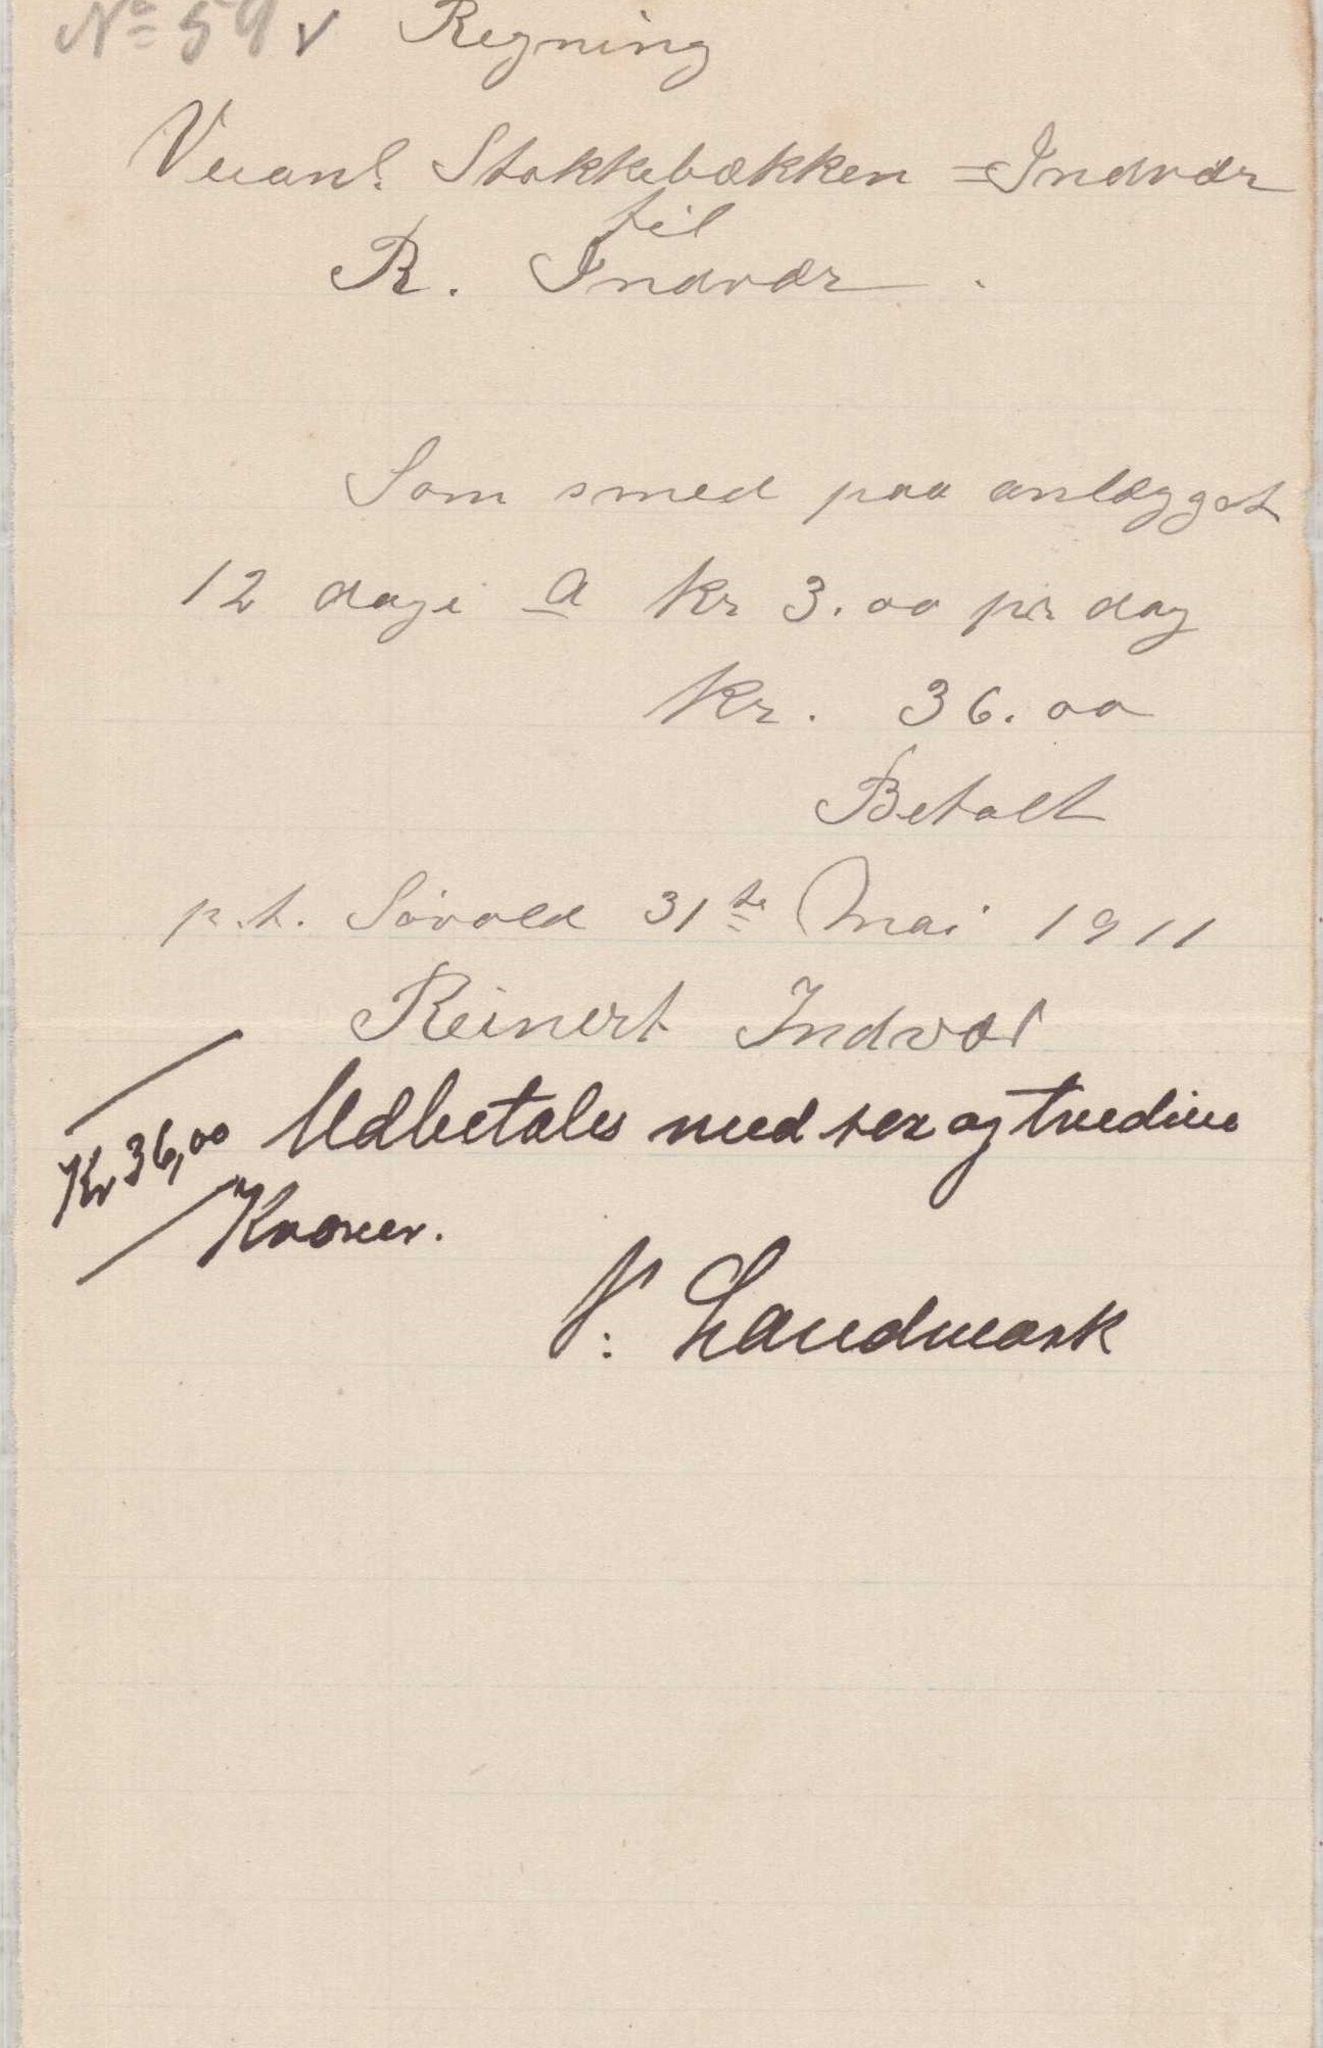 No 59 v Regning
Veianl. Stokkebækken = Indvær
til
R. Indvær.
Som smed paa anlægget
12 dage a kr 3.00 pr dag
kr. 36.00
Betalt
p.t. Søvold 31te Mai 1911
Reinert Indvær
Kr 36,00 Udbetales med sex og tredive
Kroner.
N. Landmark